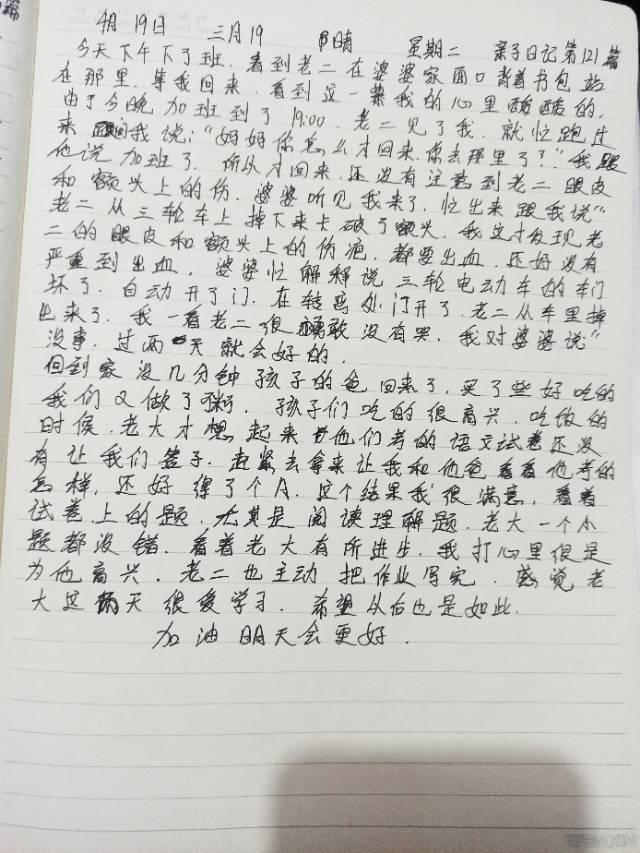 4月19日 三月19 晴 星期二 亲子日记第121篇
今天下午下了班，看到老二在婆婆家面口背着书包站
在那里，等我回来，看到这一幕我的心里酸酸的，
由于今晚加班到了19:00，老二见了我，就忙跑过
来跟我说："妈妈你怎么才回来，你去那里了？"我跟
他说加班了，所以才回来，还没有注意到老二眼皮
和额头上的伤，婆婆听见我来了，忙出来跟我说"
老二从三轮车上掉下来卡破了额头，我这才发现老
二的眼皮和额头上的伤疤，都要出血，还好没有
严重到出血，婆婆忙解释说三轮电动车的车门
坏了，自动开了门，在转弯处门开了，老二从车里掉
出来了，我一看老二很勇敢没有哭，我对婆婆说："
没事，过两天就会好的，
回到家没几分钟孩子的爸回来了，买了些好吃的
我们又做了粥，孩子们吃的很高兴，吃饭的
时候，老大才想起来他们考的语文试卷还没
有让我们签字，赶紧去拿来让我和他爸看看他考的
怎样，还好得了个A，这个结果我很满意，看着
试卷上的题，尤其是阅读理解题，老大一个小
题都没错，看着老大有所进步，我打心里很是
为他高兴，老二也主动把作业写完，感觉老
大这两天很爱学习，希望从后也是如此.
加油明天会更好.